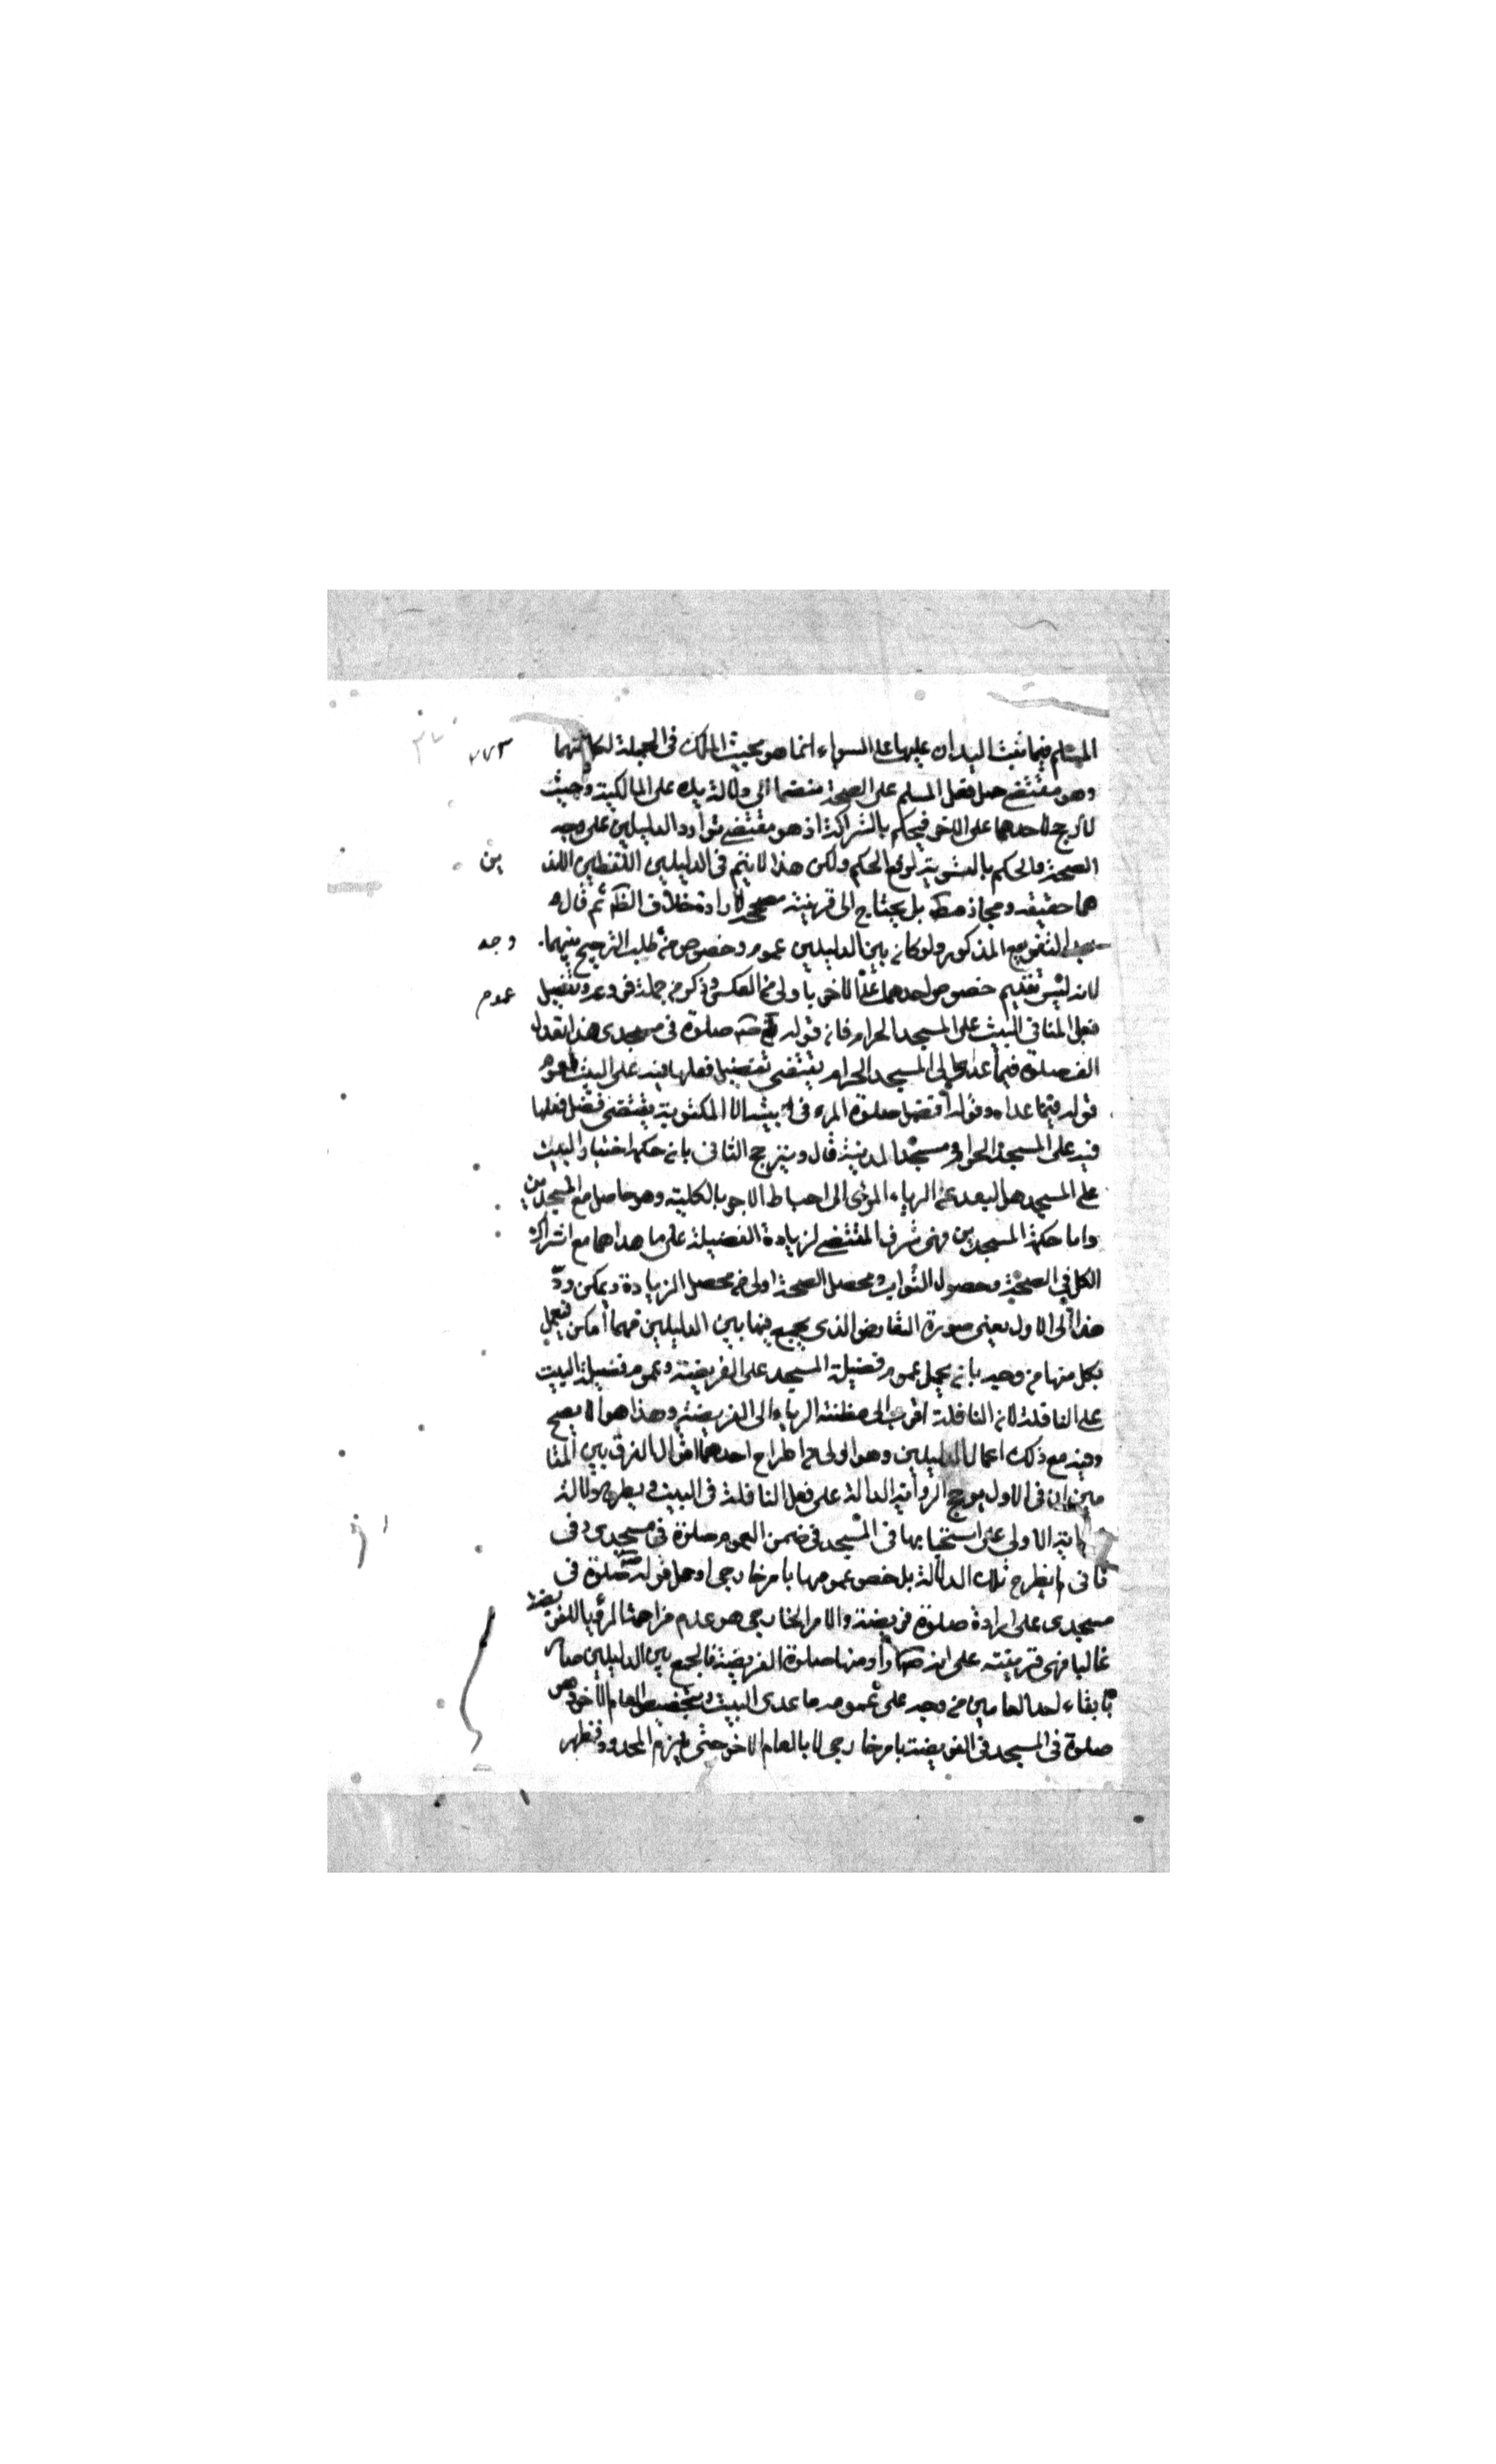 المسلم فيما ثبت اليدان عليها على السواء انما هو بحيث المالك فى الجملة لكليتهما
وهو مقتضى حمل فعل المسلم على الصحة منضما الى دلالة يده على المالكية وحيث
لا ترجيح لاحدهما على الاخر فيحكم بالشراكة اذ هو مقتضى توارد الدليلين على وجه
الصحة فالحكم بالتسوية لوقع الحكم ولكن هذا لا يتم فى الدليلين اللفظيين اللذ ين
هما حقيقه ومجاز بل يحتاج الى قرينة مصححة لارادة خلاف الظ ثم قال
بعد التفريع المذكور ولو كان بين الدليلين عموم وخصوص من وجه طلب الترجيح بينهما
لانه ليس تقديم خصوص احدهما على عموم الاخر باولى من العكس وذكر من جملة فروعه وتفضيل
فعل المنافى البيت على المسجد الحرام فان قوله صلوة فى مسجدى هذا تعدل
الف صلوة فيما عداه الا المسجد الحرام يقتضى تفضيل فعلها فيه على البيت لعموم
قوله فيما عداه وقوله افضل صلوة المرء فى بيته الا المكتوبة يقتضى فضل فعلها
فيه على المسجد الحرام ومسجد المدينة قال ويترجح الثانى بان حكمة اختيار البيت
على المسجد هو البعد عن الرياء المؤدى الى احباط الاجر بالكلية وهو حاصل مع المسجدين
واما حكمة المسجدين فهى شرف المقتضى لزيادة الفضيلة على ما عداهما مع اشتراك
الكل فى الصحة وحصول الثواب ومحصل الصحة اولى من محصل الزيادة ويمكن ردّ
هذا الى الاول يعنى صورة التعارض الذى يجمع فيها بين الدليلين مهما امكن فيعمل
بكل منهما من وجه بان يحمل عموم فضيلة المسجد على الفريضة وعموم فضيلة البيت
على النافلة لان النافلة اقرب الى مظنة الرياء الى الفريضة وهذا هو الاصح
وفيه مع ذلك اعمال الدليلين وهو اولى من اطراح احدهما اقول الفرق بين المقا
مين ان فى الاول يرجح الرواية الدالة على فعل النافلة فى البيت ويطرح دلالة
الاولى على استحبابها فى المسجد فى ضمن العموم صلوة فى مسجدى وفى
الثانى لا يطرح تلك الدلالة بل خص عمومها بامر خارجى او حمل قوله صلوة فى
مسجدى على ارادة صلوة فريضة والامر الخارجى هو عدم مزاحمة الرياء للفريضة
غالبا فهى قرينة على انه اراد منها صلوة الفريضة فالجمع بين الدليلين
بابقاء احد العامين من وجه على عمومه ما عدى البيت وتخصيص العام الاخر وهو
صلوة فى المسجد فى الفريضة بامر خارجى لا بالعام الاخر حتى يلزم المحذور فظهر